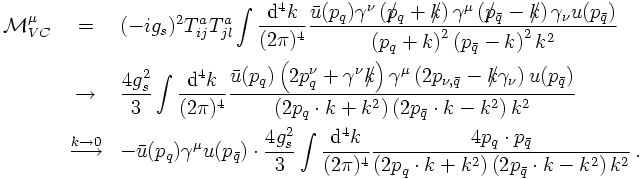 \mathcal{M}^{\mu}_{VC} = (-ig_s)^2 T^a_{ij} T^a_{jl} \int \frac{\mathrm{d}^4k}{(2\pi)^4} \frac{\bar{u}(p_q)\gamma^{\nu} \left(\not{p}_q + \not{k}\right) \gamma^{\mu} \left(\not{p}_{\bar{q}} - \not{k}\right) \gamma_{\nu} u(p_{\bar{q}})}{\left(p_q + k\right)^2 \left(p_{\bar{q}} - k\right)^2 k^2}
\to \frac{4g_s^2}{3} \int \frac{\mathrm{d}^4k}{(2\pi)^4} \frac{\bar{u}(p_q) \left(2p_q^{\nu} + \gamma^{\nu}\not{k}\right) \gamma^{\mu} \left(2p_{\nu,\bar{q}} - \not{k}\gamma_{\nu}\right) u(p_{\bar{q}})}{\left(2p_q \cdot k + k^2\right) \left(2p_{\bar{q}} \cdot k - k^2\right) k^2}
\xrightarrow{k \to 0} -\bar{u}(p_q)\gamma^{\mu} u(p_{\bar{q}}) \cdot \frac{4g_s^2}{3} \int \frac{\mathrm{d}^4k}{(2\pi)^4} \frac{4p_q \cdot p_{\bar{q}}}{\left(2p_q \cdot k + k^2\right) \left(2p_{\bar{q}} \cdot k - k^2\right) k^2} .